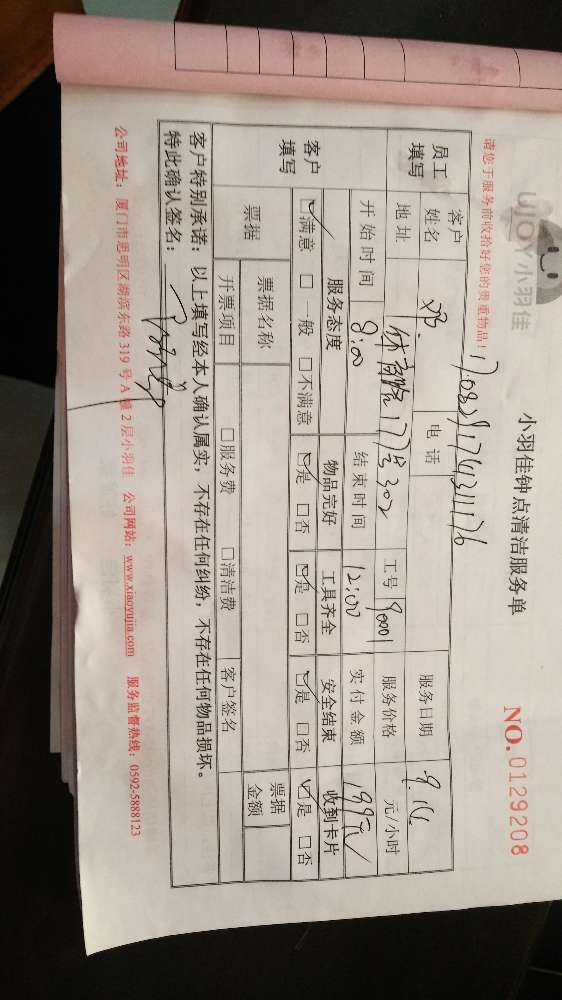 UJOY小羽佳
小羽佳钟点清洁服务单
NO.0129208
请您于服务前收拾好您的贵重物品！
员工填写 客户姓名 邓. 电话 服务日期
地址 体育路 177号302 工号 9001 服务价格 元/小时
开始时间 8:00 结束时间 12:00 实付金额 199元
客户填写 服务态度 物品完好 工具齐全 安全结束 收到卡片
☑满意 □一般 □不满意 ☑是 □否 ☑是 □否 ☑是 □否 ☑是 □否
票据 票据名称 票据金额
开票项目 □服务费 □清洁费 客户签名
客户特别承诺：以上填写经本人确认属实，不存在任何纠纷，不存在任何物品损坏。
特此确认签名：
公司地址：厦门市思明区湖滨东路 319 号 A 幢 2 层小羽佳 公司网站：www.xiaoyujia.com 服务监督热线：0592-5888123